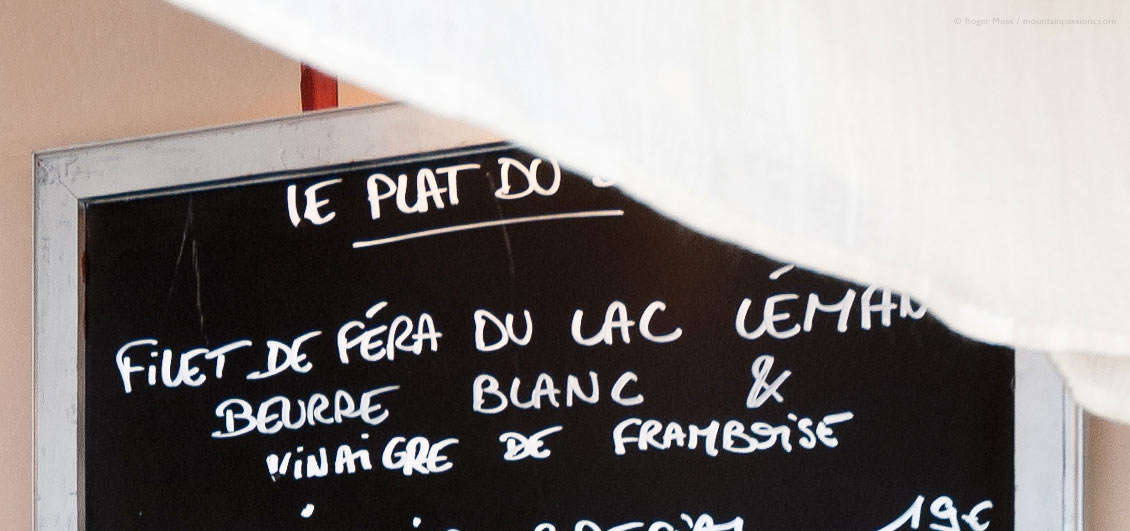 © Roger Moss / mountainpassions.com
LE PLAT DU
FILET DE FÉRA DU LAC LÉMAN
BEURRE BLANC &
VINAIGRE DE FRAMBOISE
19€